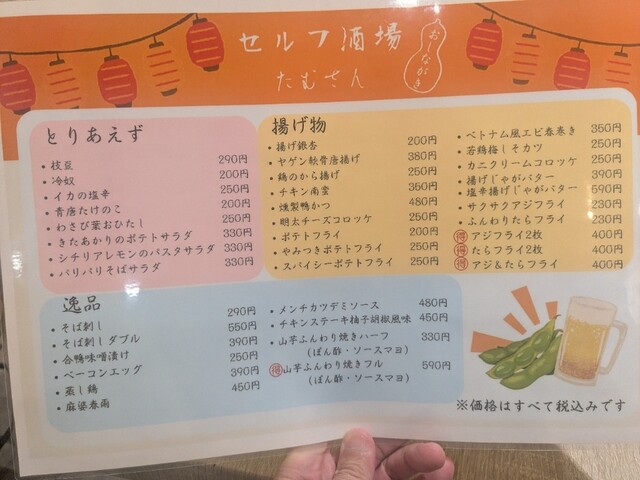 セルフ酒場
おしながき
たむさん
とりあえず
・枝豆 290円
・冷奴 200円
・イカの塩辛 250円
・青唐たけのこ 200円
・わさび菜おひたし 250円
・きたあかりのポテトサラダ 330円
・シチリアレモンのパスタサラダ 330円
・パリパリそばサラダ 330円
揚げ物
・揚げ銀杏 200円
・ヤゲン軟骨唐揚げ 380円
・鶏のから揚げ 250円
・チキン南蛮 350円
・燻製鴨かつ 480円
・明太チーズコロッケ 250円
・ポテトフライ 200円
・やみつきポテトフライ 250円
・スパイシーポテトフライ 250円
・ベトナム風エビ春巻き 350円
・若鶏梅しそカツ 250円
・カニクリームコロッケ 250円
・揚げじゃがバター 390円
・塩辛揚げじゃがバター 590円
・サクサクアジフライ 230円
・ふんわりたらフライ 230円
得 アジフライ2枚 400円
得 たらフライ2枚 400円
得 アジ&たらフライ 400円
逸品
・そば刺し 290円
・そば刺しダブル 550円
・合鴨味噌漬け 390円
・ベーコンエッグ 250円
・蒸し鶏 390円
・麻婆春雨 450円
・メンチカツデミソース 480円
・チキンステーキ柚子胡椒風味 450円
・山芋ふんわり焼きハーフ 330円
(ぽん酢・ソースマヨ)
得 山芋ふんわり焼きフル 590円
(ぽん酢・ソースマヨ)
※価格はすべて税込みです